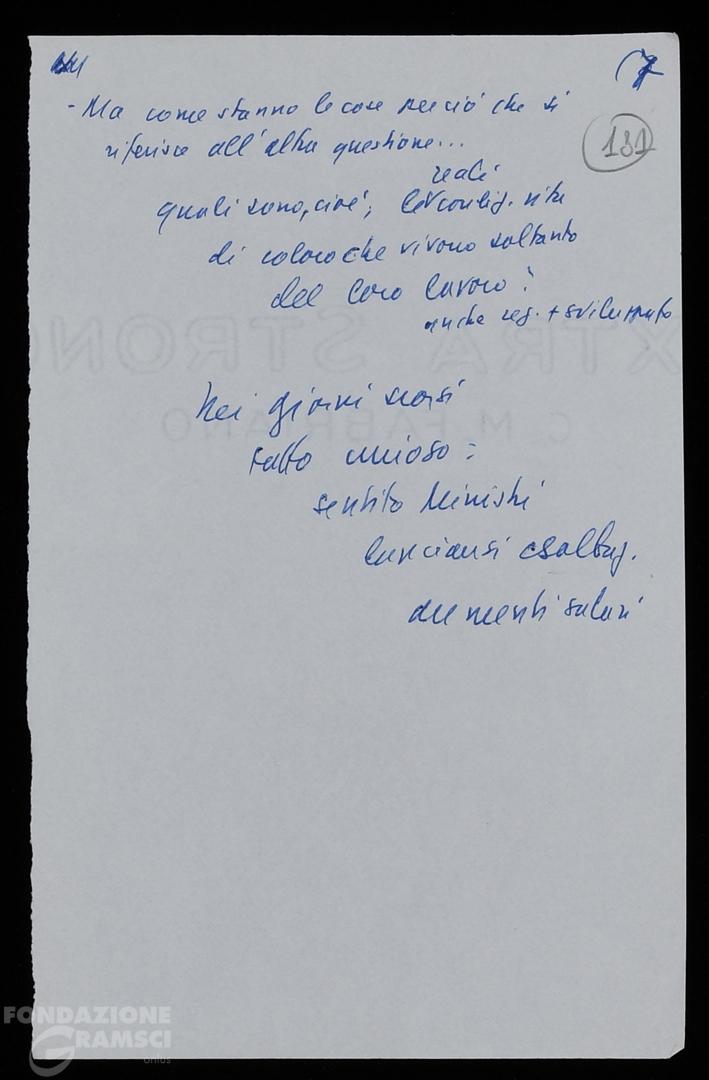 7
181
- Ma come stanno le cose per ciò che si
riferisce all'altra questione...
reali
quali sono, cioè, le condiz. vita
di coloro che vivono soltanto
del loro lavoro?
anche reg. + sviluppato
Nei giorni scorsi
fatto curioso:
sentito Ministri
lanciarsi esaltaz.
aumenti salari
EXTRA STRONG
C. M. FABRIANO
FONDAZIONE
GRAMSCI
onlus